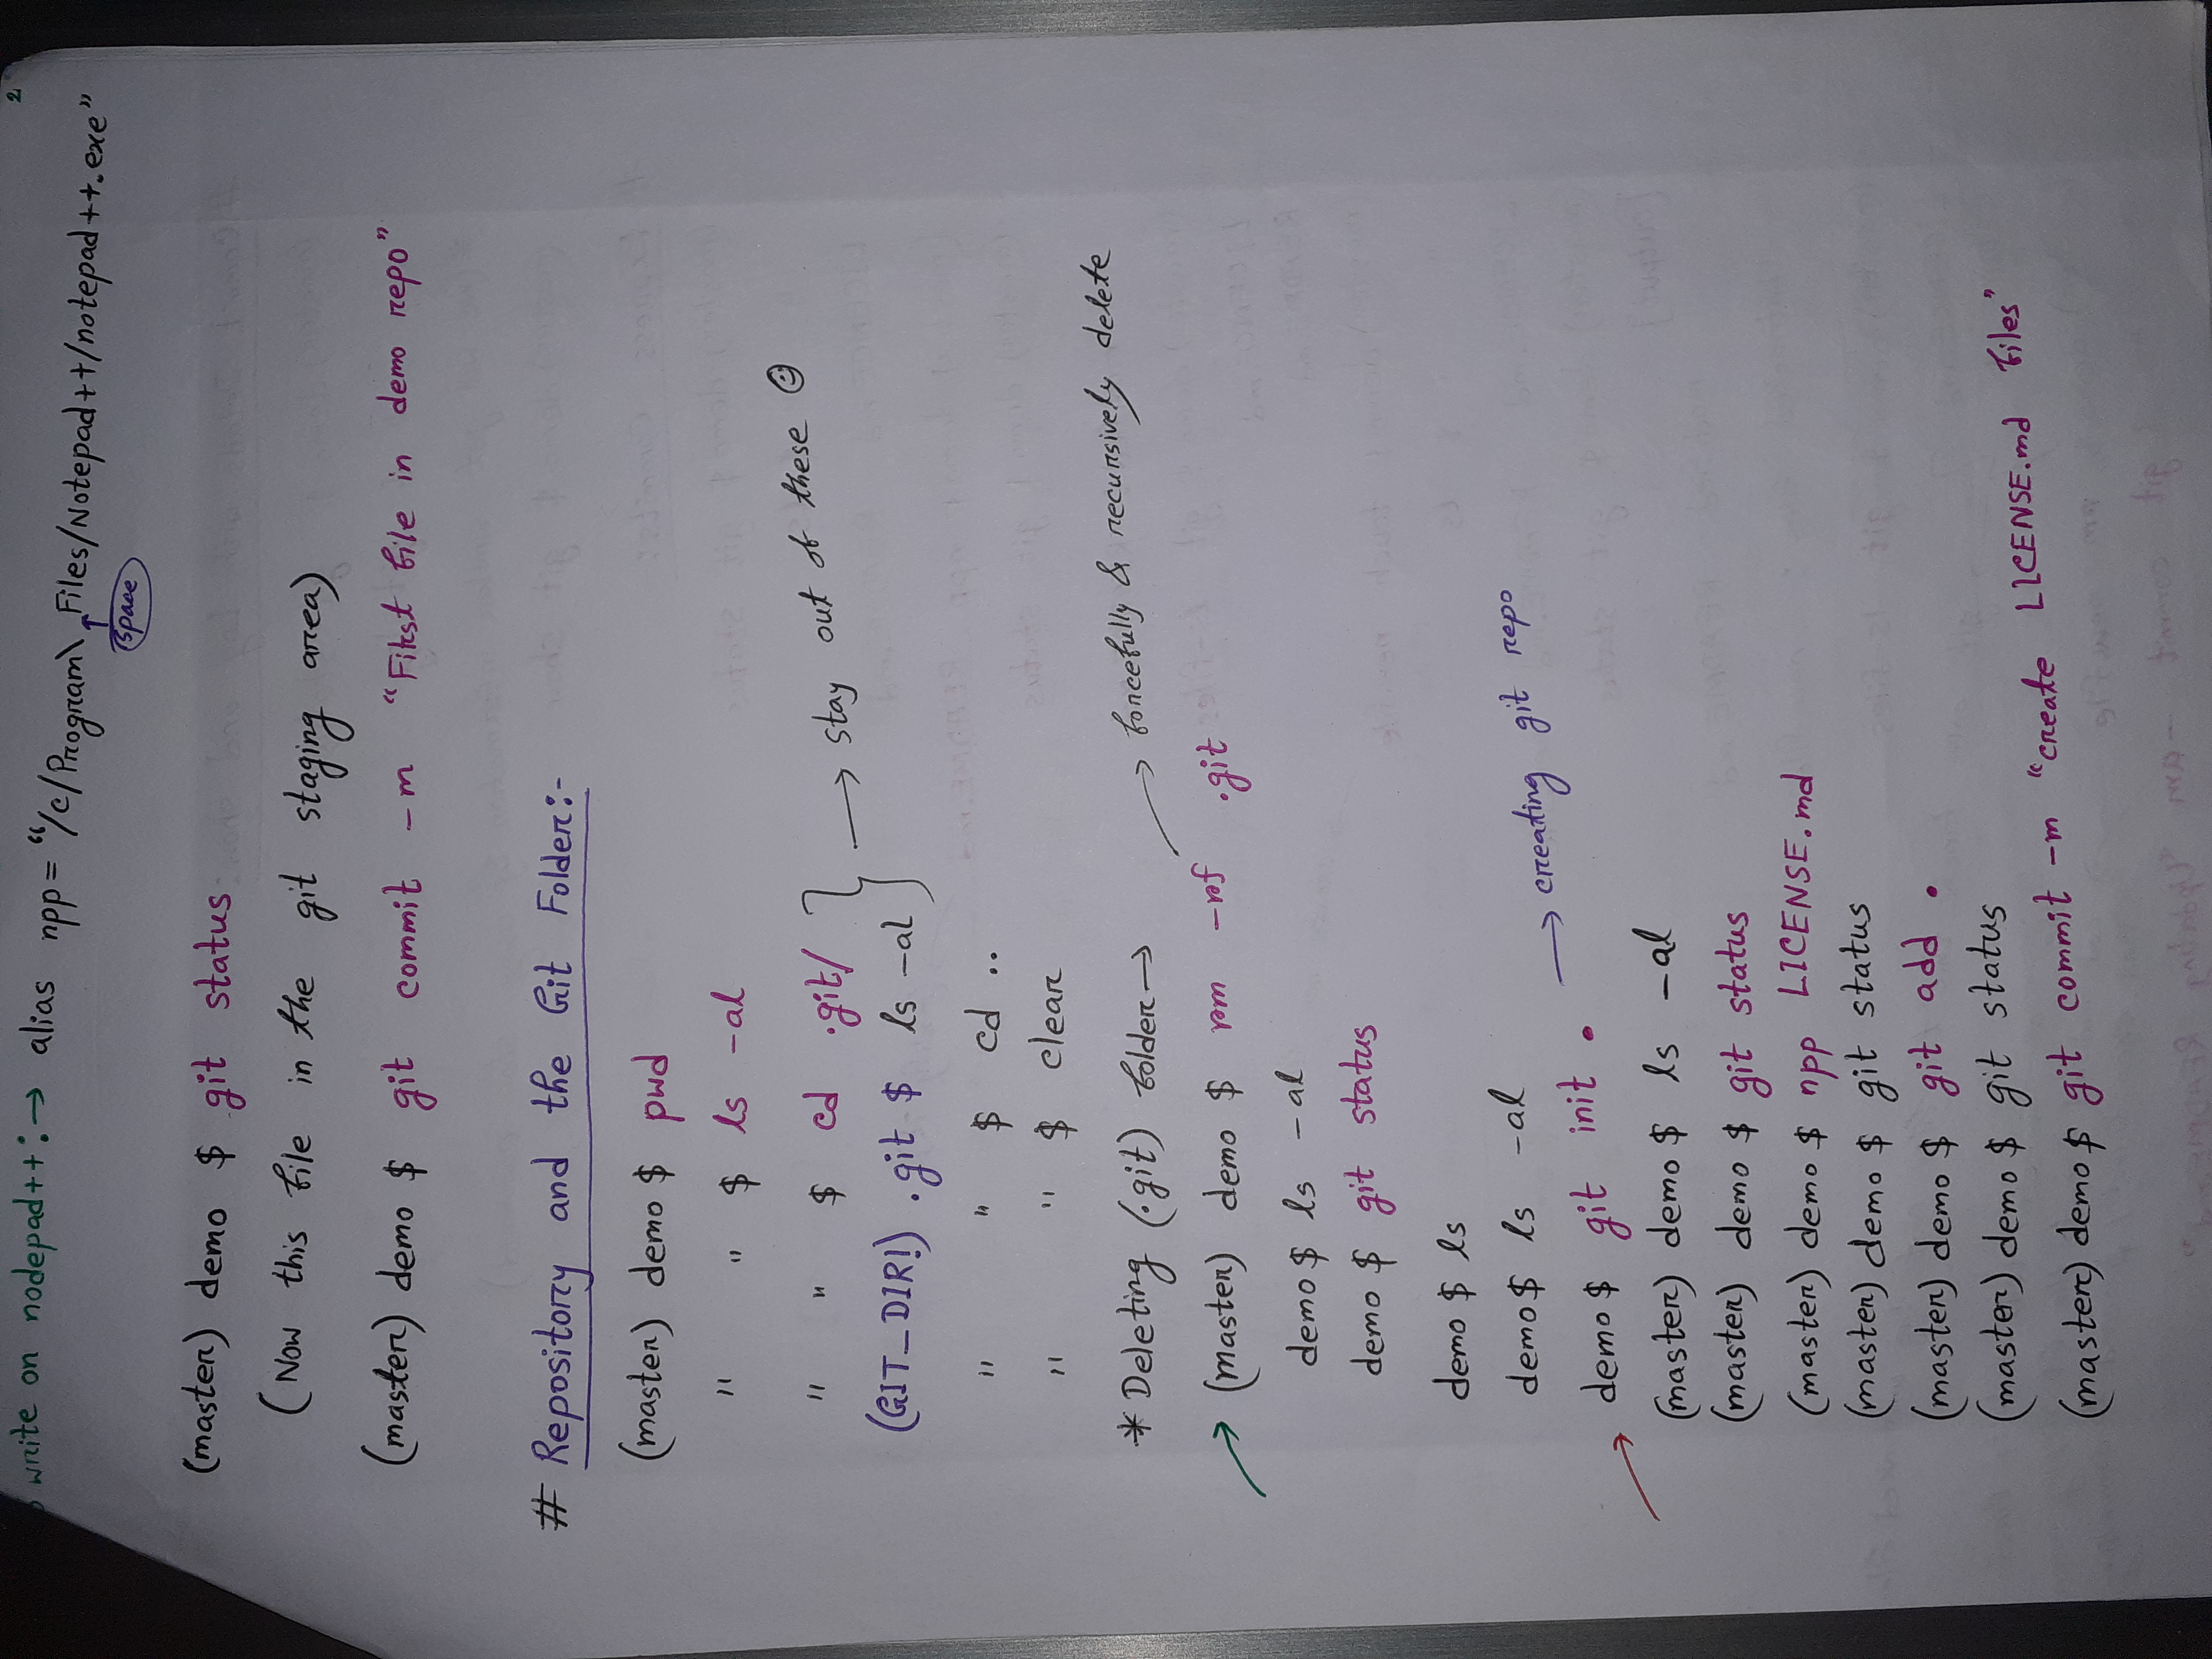 2
write on nodepad++:→ alias npp= “/c/Program\ Files/Notepad++/notepad++.exe”
Space
(master) demo $ git status
(Now this file in the git staging area)
(master) demo $ git commit -m “First file in demo repo”
# Repository and the Git Folder:-
(master) demo $ pwd
" " $ ls -al
" " $ cd .git/
→ stay out of these ☺
(GIT_DIR!) .git $ ls -al
" " $ cd ..
" " $ clear
* Deleting (.git) folder→
→ forcefully & recursively delete
→ (master) demo $ rm -rf .git
demo $ ls -al
demo $ git status
demo $ ls
demo $ ls -al
→ demo $ git init . → creating git repo
(master) demo $ ls -al
(master) demo $ git status
(master) demo $ npp LICENSE.md
(master) demo $ git status
(master) demo $ git add .
(master) demo $ git status
(master) demo $ git commit -m “create LICENSE.md files”